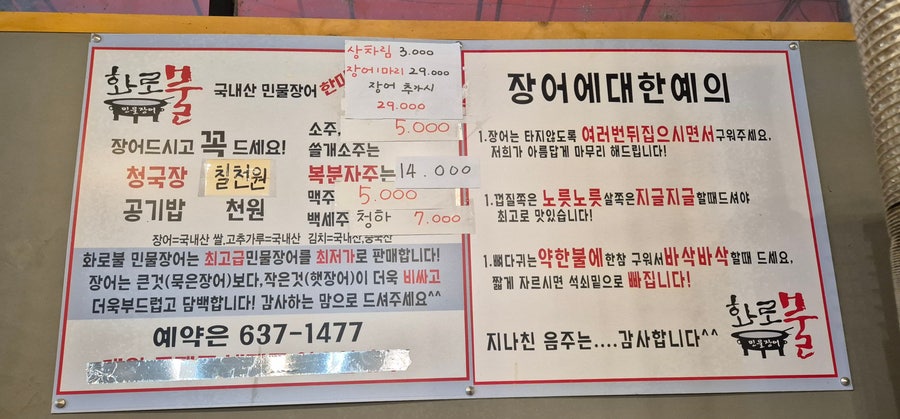 화로불
민물장어
국내산 민물장어
상차림 3.000
장어1마리 29.000
장어 추가시
29.000
장어드시고 꼭 드세요!
청국장 칠천원
공기밥 천원
소주, 5.000
쓸개소주는
복분자주는 14.000
맥주 5.000
백세주 청하 7.000
장어=국내산 쌀,고추가루=국내산 김치=국내산,중국산
화로불 민물장어는 최고급민물장어를 최저가로 판매합니다!
장어는 큰것(묵은장어)보다,작은것(햇장어)이 더욱 비싸고
더욱부드럽고 담백합니다! 감사하는 맘으로 드셔주세요^^
예약은 637-1477
장어에대한예의
1.장어는 타지않도록 여러번뒤집으시면서구워주세요.
저희가 아름답게 마무리 해드립니다!
1.껍질쪽은 노릇노릇살쪽은지글지글할때드셔야
최고로 맛있습니다!
1.뼈다귀는약한불에한참 구워서바삭바삭할때 드세요.
짧게 자르시면 석쇠밑으로 빠집니다!
지나친 음주는....감사합니다^^
화로불
민물장어